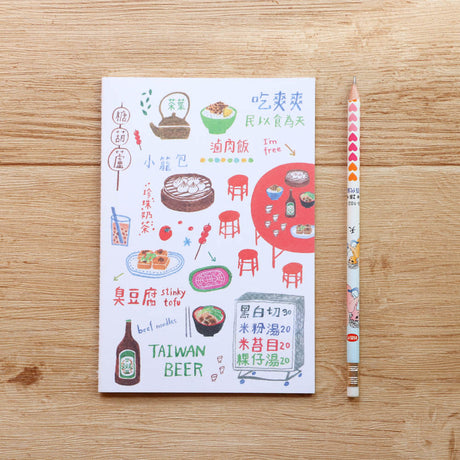 糖葫蘆
茶葉
吃爽爽
民以食為天
滷肉飯
I'm free
小籠包
珍珠奶茶
臭豆腐 stinky tofu
beef noodles
TAIWAN BEER
黑白切30
米粉湯20
米苔目20
粿仔湯20